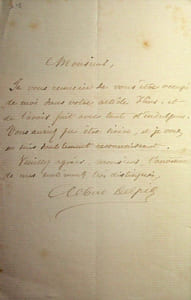 Monsieur,
Je vous remercie de vous être occupé
de moi dans votre article et
de l'avoir fait avec tant d'indulgence.
Vous auriez pu être sévère, et je vous
en suis reconnaissant.
Veuillez agréer, monsieur, l'assurance
de mes sentiments distingués,
Albert Delpit